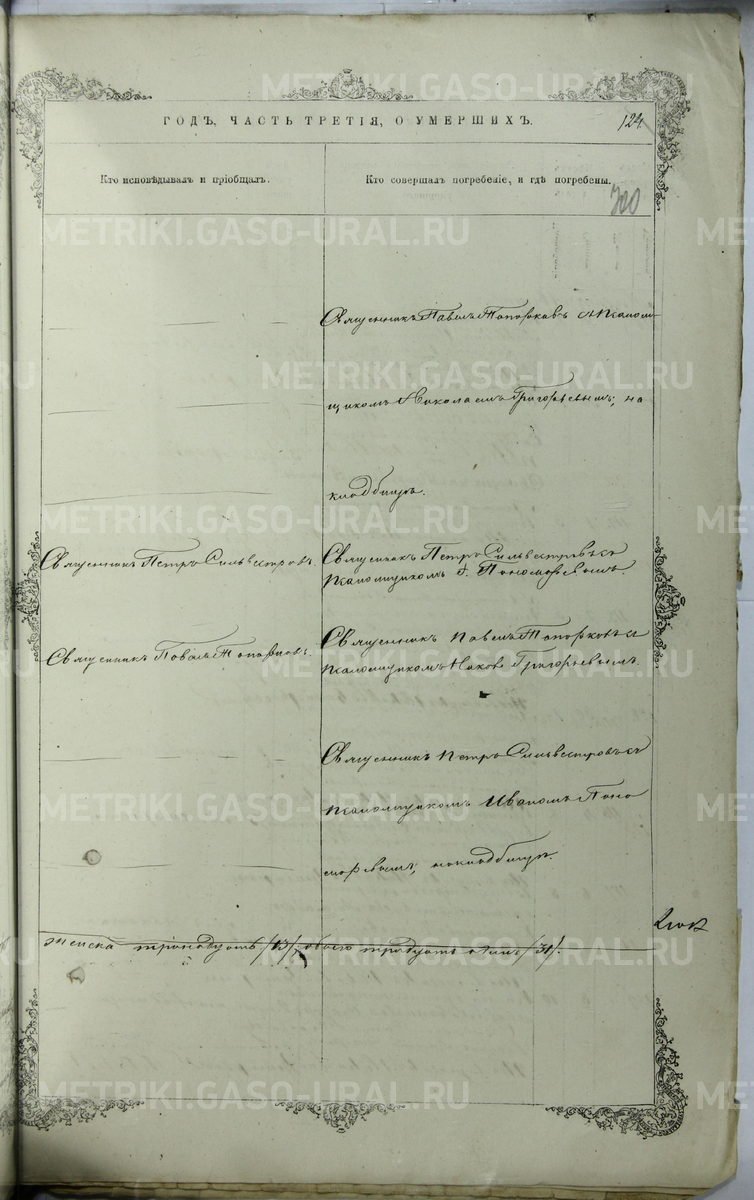 ГОДЪ, ЧАСТЬ ТРЕТІЯ, О УМЕРШИХЪ.
124
Кто исповѣдывалъ и пріобщалъ.
Кто совершалъ погребеніе, и гдѣ погребены.
300
Священникъ Павелъ Топорковъ съ псаломщикомъ Николаемъ Григорьевымъ; на
кладбищѣ.
Священникъ Петръ Сильвестровъ.
Священникъ Петръ Сильвестровъ съ
псаломщикомъ І. Пономаревымъ.
Священникъ Павелъ Топорковъ.
Священникъ Павелъ Топорковъ съ
псаломщикомъ Никол. Григорьевымъ.
Священникъ Петръ Сильвестровъ съ
псаломщикомъ Иваномъ Поно
маревымъ; на кладбищѣ.
женска тринадцать /13/, обоего тридцать одинъ /31/.
METRIKI.GASO-URAL.RU